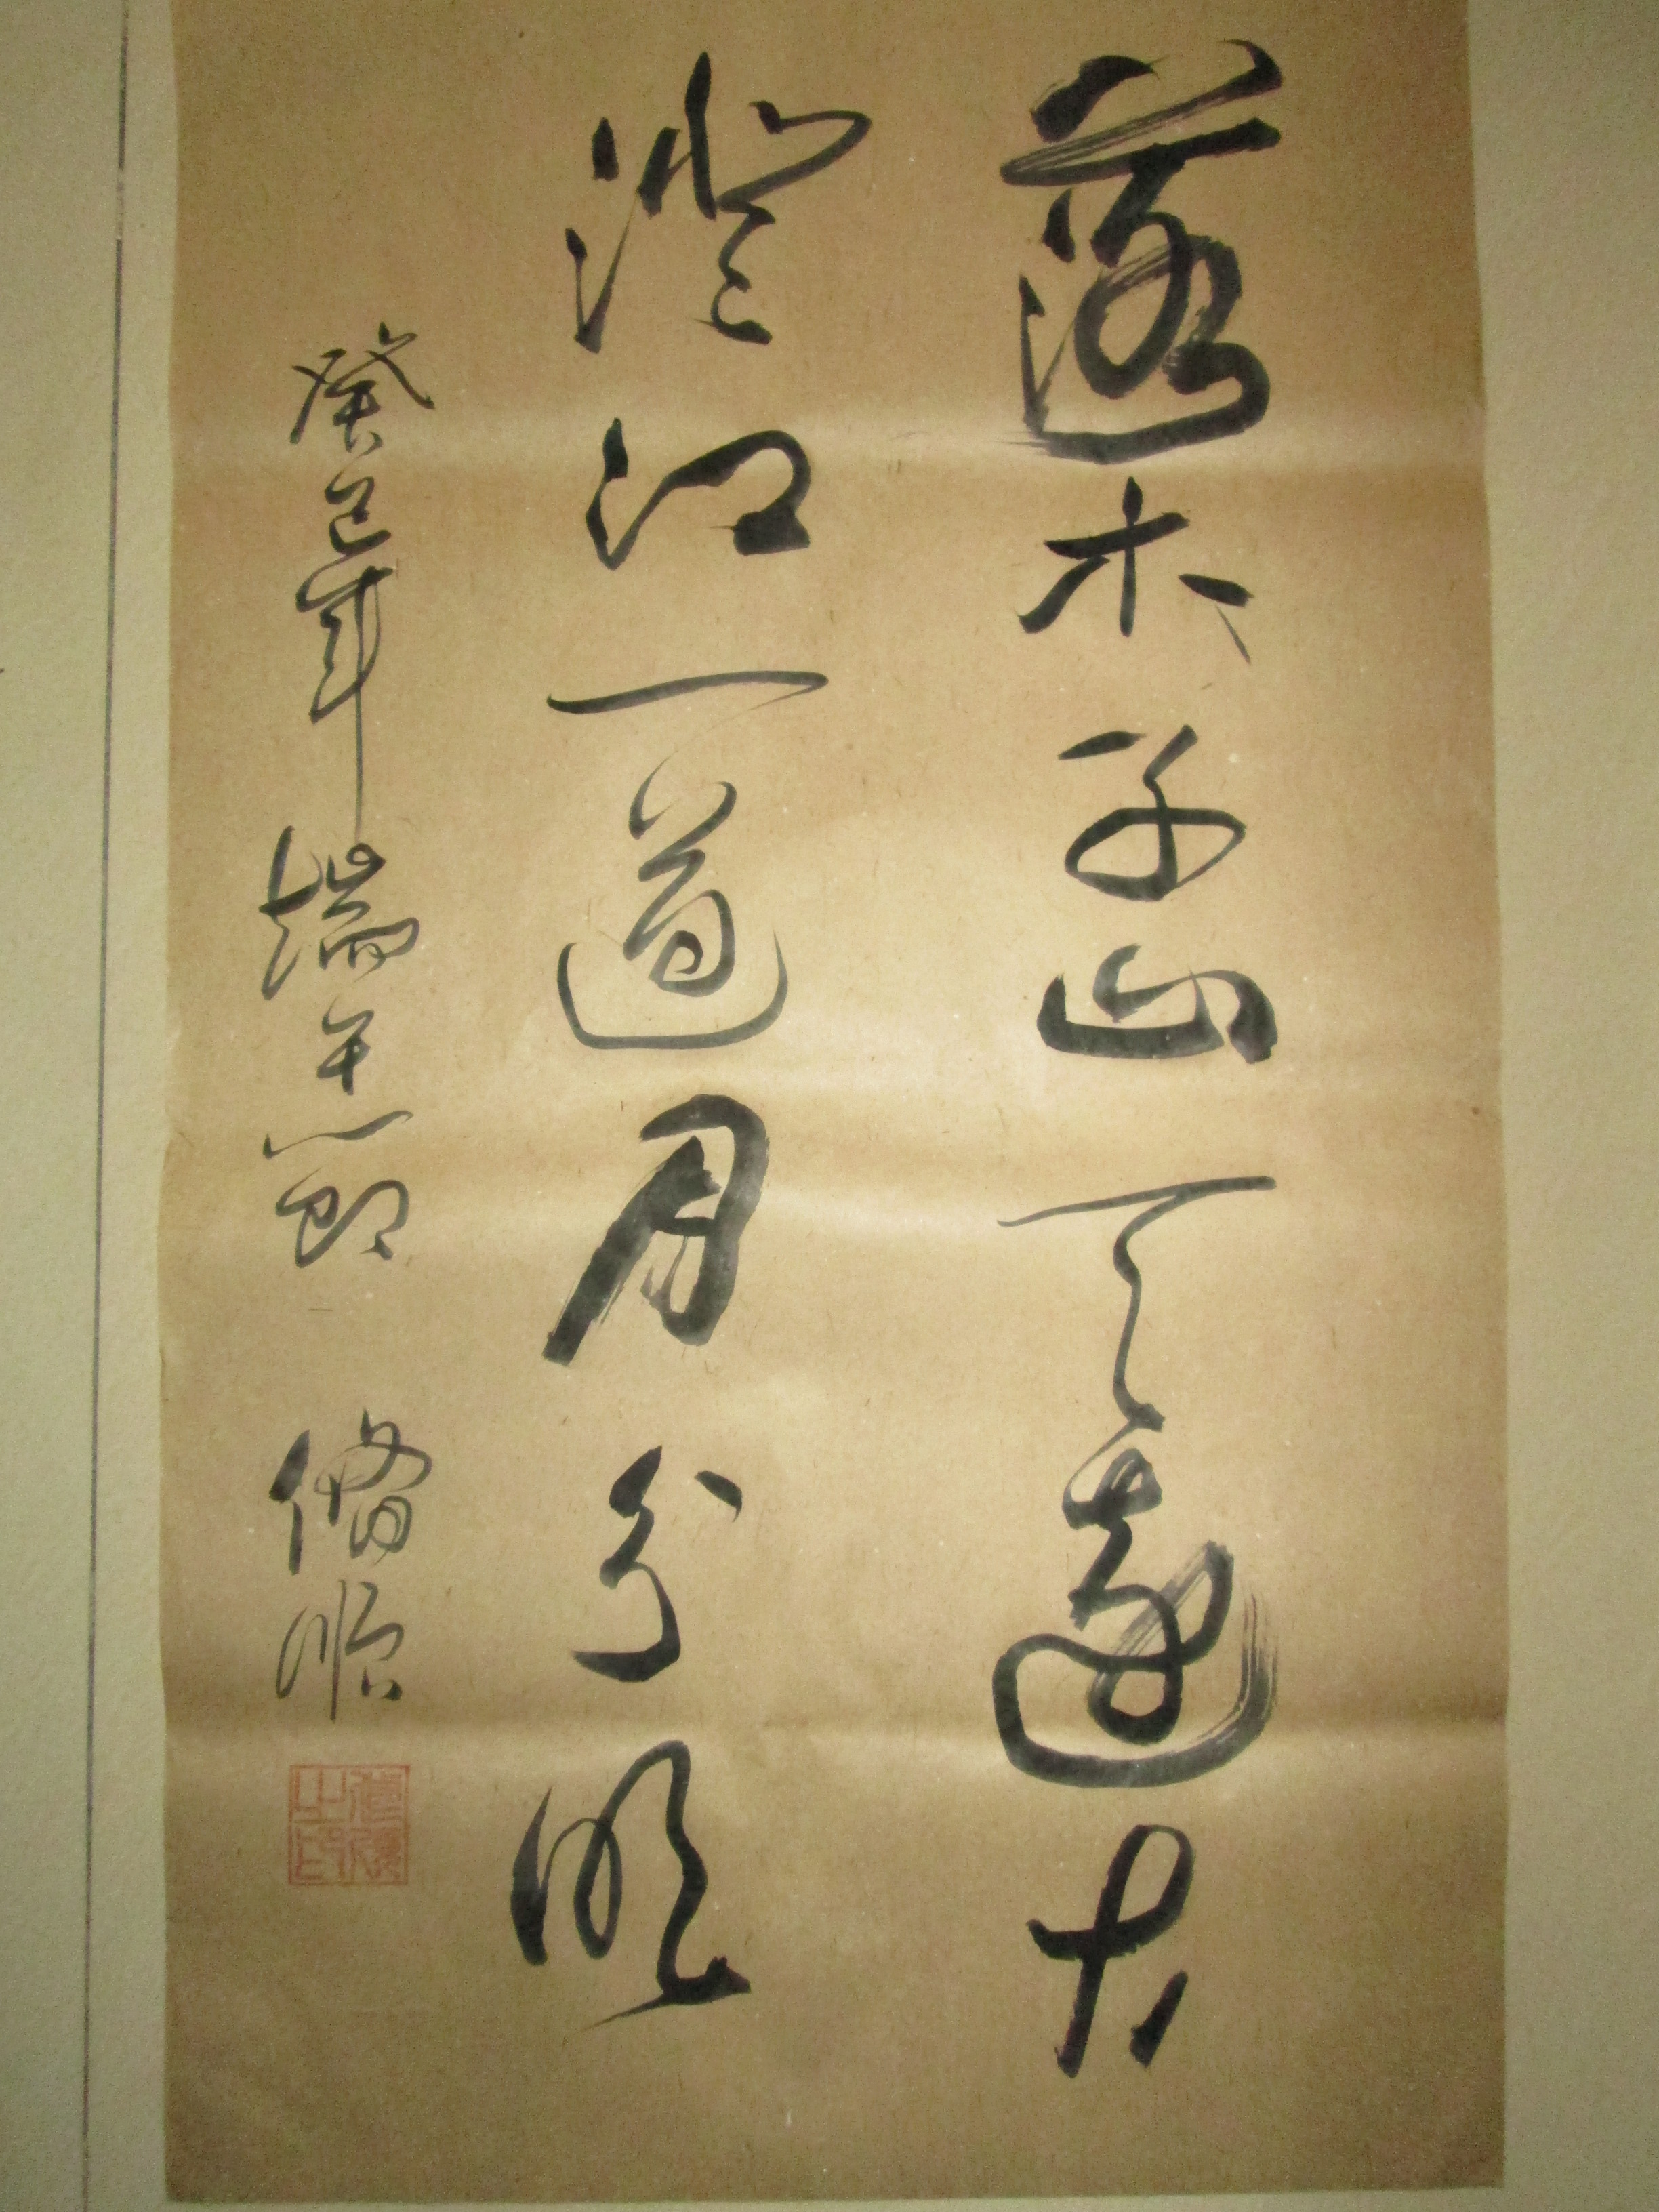 落木千山天遠大
澄江一道月分明
癸巳年端午節 脩順